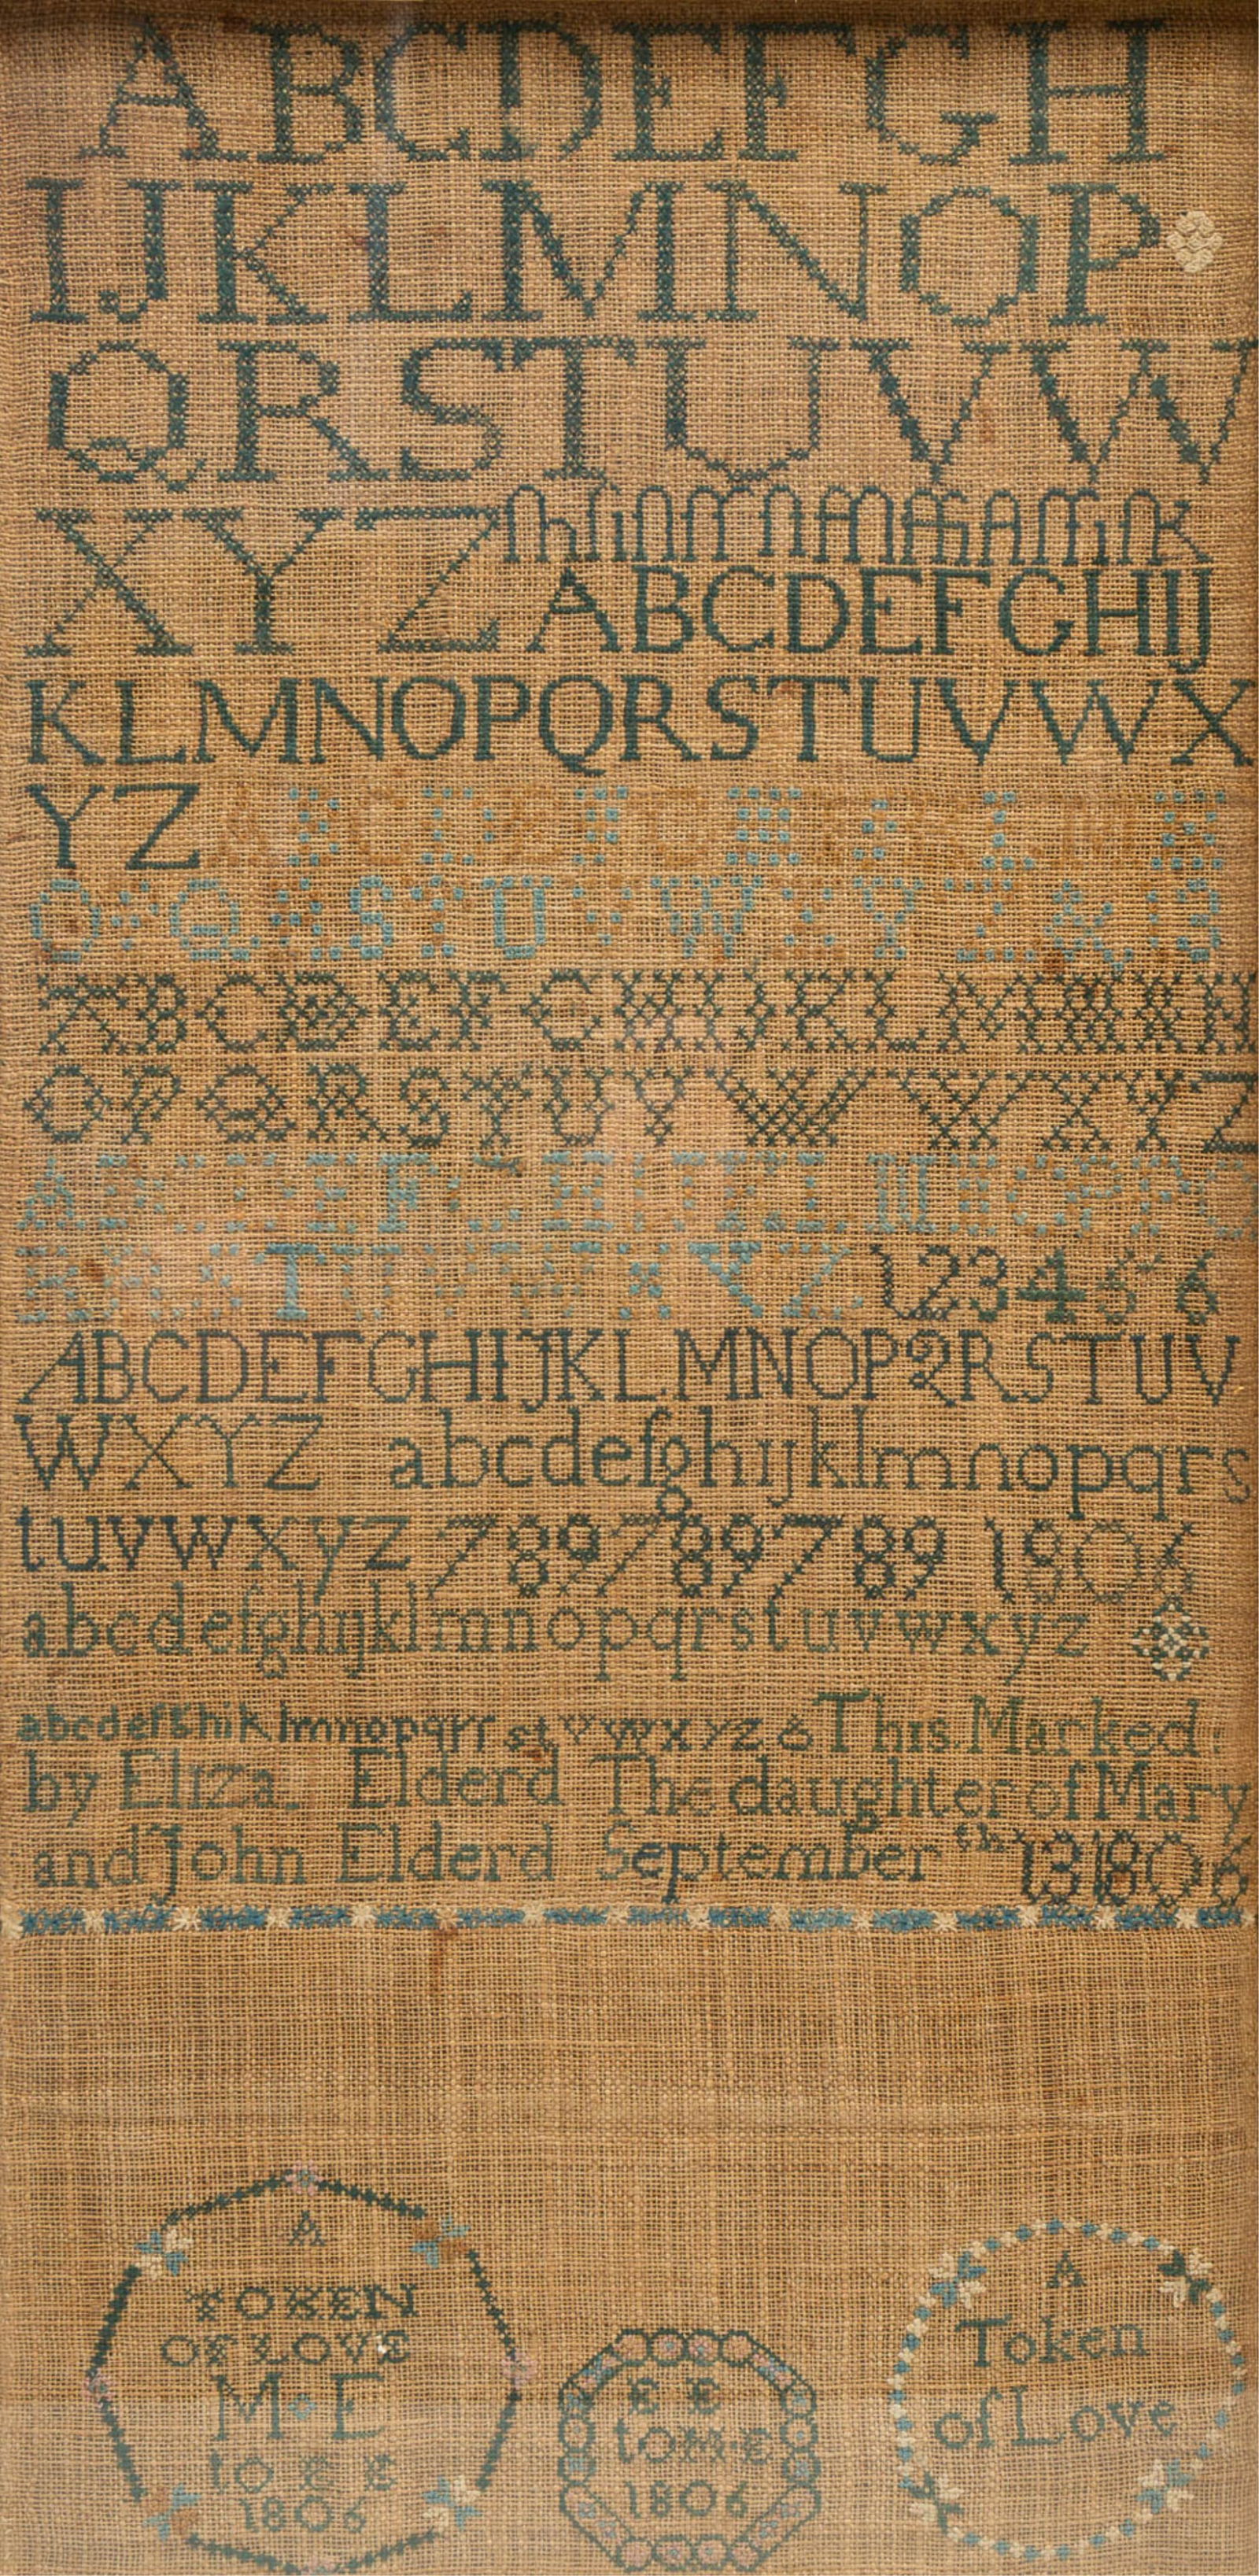 ABCDEFGH
IJKLMNOP
QRSTUVW
XYZ
ABCDEFGHIJ
KLMNOPQRSTUVWX
YZ
O Q STU W Y Z &
ABCDEFGHIJKLMN
OPQRSTUVWXYZ
T YZ 123456
ABCDEFGHIJKLMNOPQRSTUV
WXYZ abcdefghijklmnopqrs
tuvwxyz 789789789 1806
abcdefghijklmnopqrstuvwxyz
abcdefghiklmnopqrſstvwxyz & This Marked
by Eliza. Elderd The daughter of Mary
and John Elderd September th 13 1806
A
TOKEN
OF LOVE
M E
to E E
1806
E E
to M E
1806
A
Token
of Love